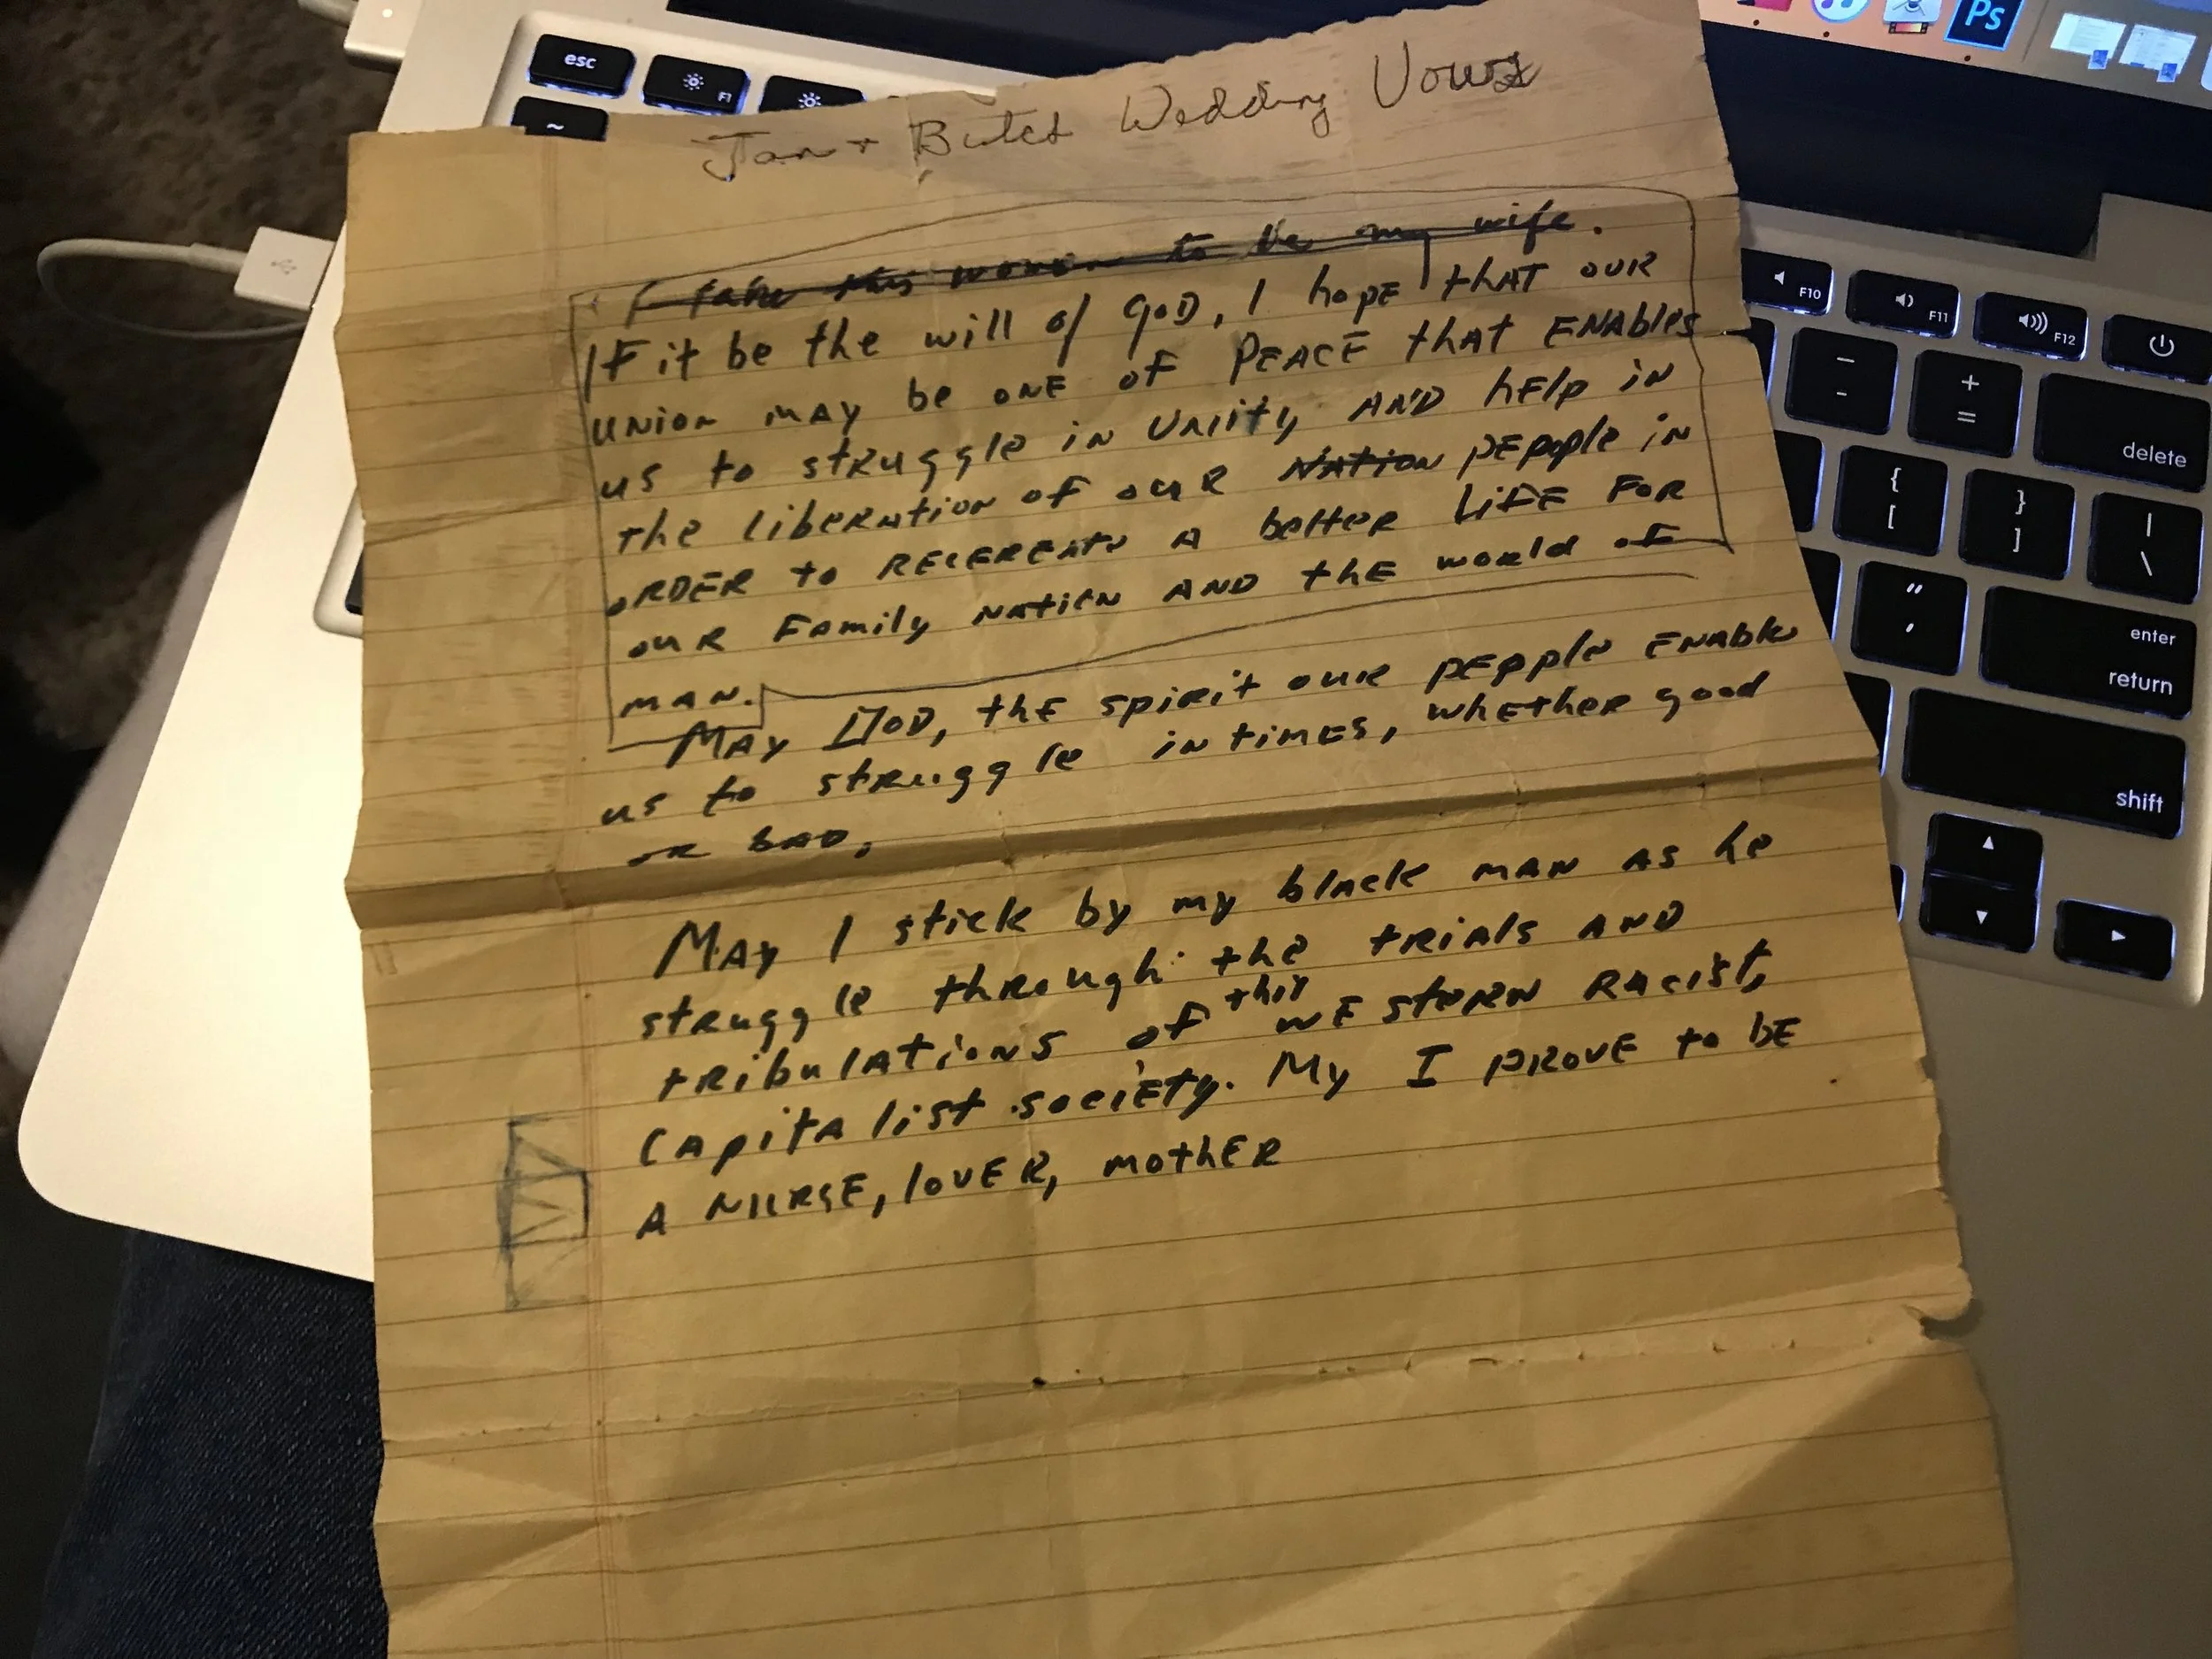 esc
F1
~
Ps
Jan + Butch Wedding Vows
I take this woman to be my wife.
If it be the will of God, I hope that our
union may be one of Peace that enables
us to struggle in Unity, and help in
the liberation of our Nation people in
order to recereate a better life for
our Family nation and the world of
man.
May God, the spirit our people enable
us to struggle in times, whether good
or bad,
May I stick by my black man as he
struggle through the trials and
this
tribulations of western racist,
Capitalist society. My I prove to be
a nurse, lover, mother
F10
F11
F12
—
-
+
=
delete
{
[
}
]
|
\
"
'
enter
return
shift